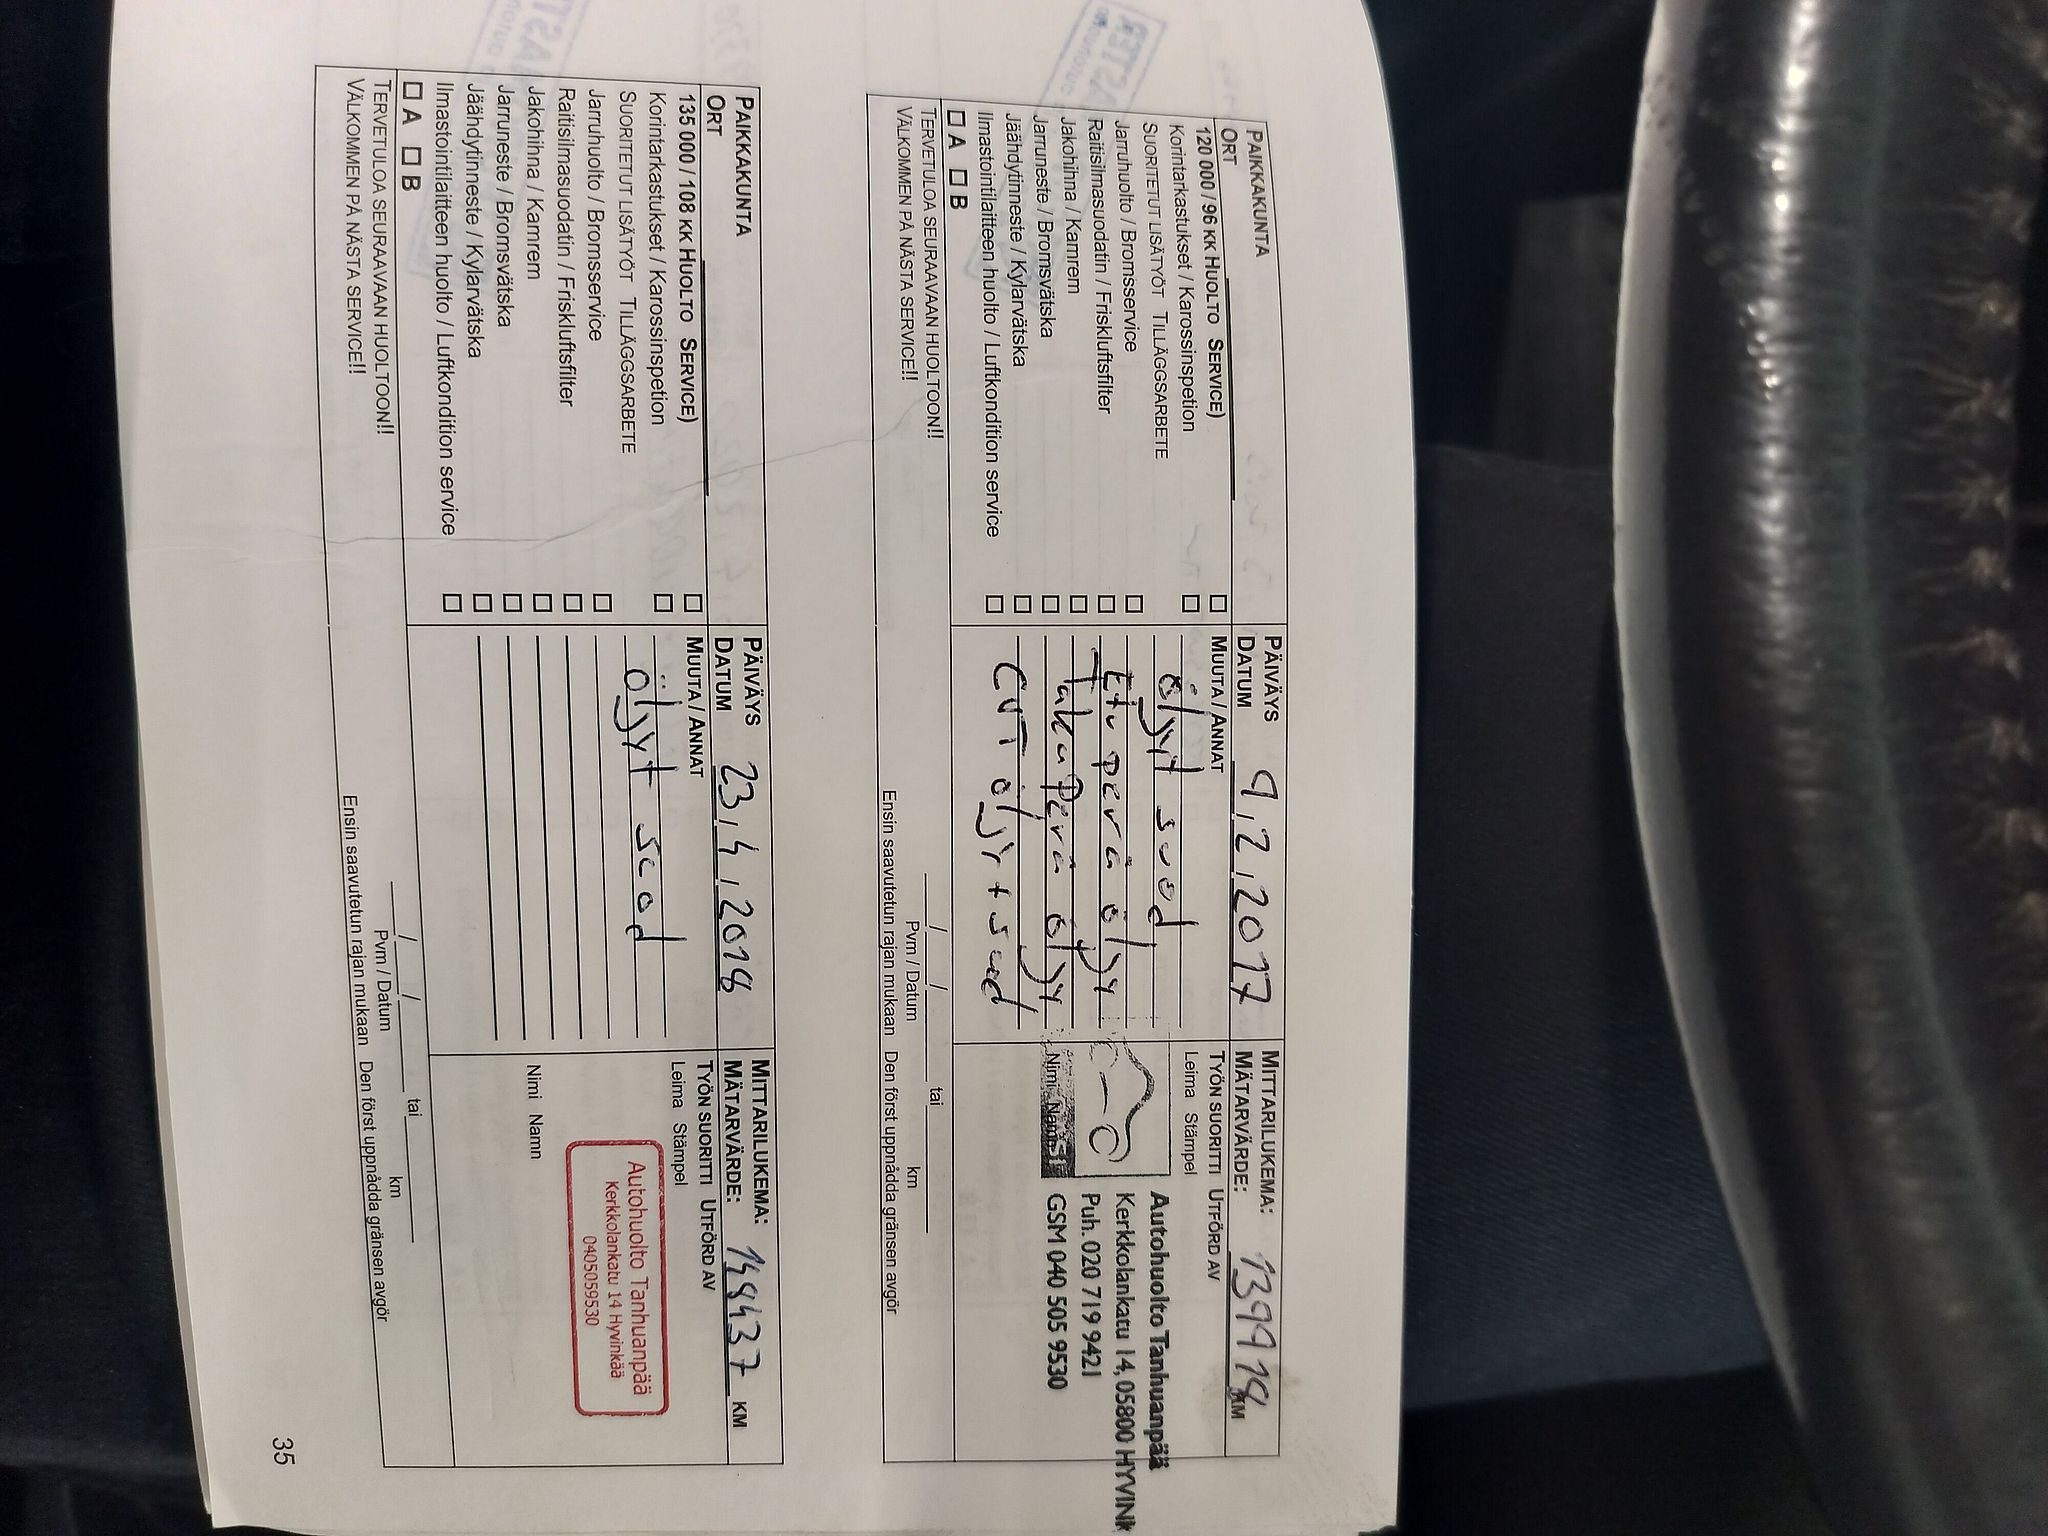 PAIKKAKUNTA
ORT
PÄIVÄYS
DATUM 9.2.2017
MITTARILUKEMA:
MÄTARVÄRDE: 139918 KM
120 000 / 96 KK HUOLTO SERVICE) ☐
Korintarkastukset / Karossinspetion ☐
SUORITETUT LISÄTYÖT TILLÄGGSARBETE
Jarruhuolto / Bromsservice ☐
Raitisilmasuodatin / Friskluftsfilter ☐
Jakohihna / Kamrem ☐
Jarruneste / Bromsvätska ☐
Jäähdytinneste / Kylarvätska ☐
Ilmastointilaitteen huolto / Luftkondition service ☐
MUUTA / ANNAT
öljyt suod
Etu perä öljy
Taka Perä öljy
CVT öljy + suod
TYÖN SUORITTI UTFÖRD AV
Leima Stämpel
Autohuolto Tanhuanpää
Kerkkolankatu 14, 05800 HYVINK
Puh. 020 719 9421
GSM 040 505 9530
Nimi Namn
☐ A ☐ B
TERVETULOA SEURAAVAAN HUOLTOON!!
VÄLKOMMEN PÅ NÄSTA SERVICE!!
/ / tai km
Pvm / Datum
Ensin saavutetun rajan mukaan Den först uppnådda gränsen avgör
PAIKKAKUNTA
ORT
PÄIVÄYS
DATUM 23.4.2018
MITTARILUKEMA:
MÄTARVÄRDE: 148437 KM
135 000 / 108 KK HUOLTO SERVICE) ☐
Korintarkastukset / Karossinspetion ☐
SUORITETUT LISÄTYÖT TILLÄGGSARBETE
Jarruhuolto / Bromsservice ☐
Raitisilmasuodatin / Friskluftsfilter ☐
Jakohihna / Kamrem ☐
Jarruneste / Bromsvätska ☐
Jäähdytinneste / Kylarvätska ☐
Ilmastointilaitteen huolto / Luftkondition service ☐
MUUTA / ANNAT
öljyt suod
TYÖN SUORITTI UTFÖRD AV
Leima Stämpel
Autohuolto Tanhuanpää
Kerkkolankatu 14 Hyvinkää
0405059530
Nimi Namn
☐ A ☐ B
TERVETULOA SEURAAVAAN HUOLTOON!!
VÄLKOMMEN PÅ NÄSTA SERVICE!!
/ / tai km
Pvm / Datum
Ensin saavutetun rajan mukaan Den först uppnådda gränsen avgör
35